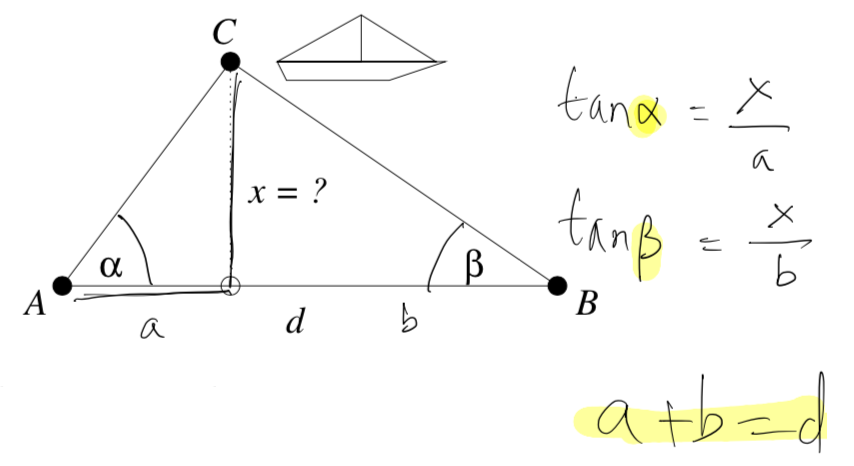 C
x = ?
α
β
A
B
a
d
b
tanα = x/a
tanβ = x/b
a+b=d